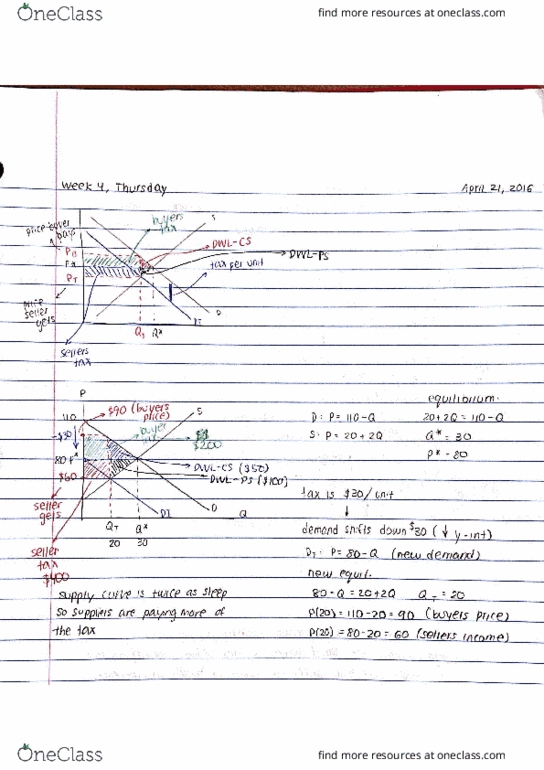 OneClass
find more resources at oneclass.com
Week 4, Thursday
April 21, 2016
price buyer pays
buyers tax
S
DWL-CS
DWL-PS
tax per unit
PB
P*
PT
price seller gets
QT
Q*
D
DT
sellers tax
P
110
$90 (buyers price)
S
buyer tax
$200
-$30
80 P*
DWL-CS ($50)
DWL-PS ($100)
$60
seller gets
DT
D
Q
QT
Q*
20
30
seller tax
$400
equilibrium:
D: P = 110-Q
20+2Q = 110-Q
S: P = 20+2Q
Q* = 30
P* = 80
tax is $30/unit
↓
demand shifts down $30 (↓ y-int)
DT: P = 80-Q (new demand)
new equil.
80-Q = 20+2Q
QT = 20
P(20) = 110-20 = 90 (buyers price)
P(20) = 80-20 = 60 (sellers income)
supply curve is twice as steep
so suppliers are paying more of
the tax
OneClass
find more resources at oneclass.com